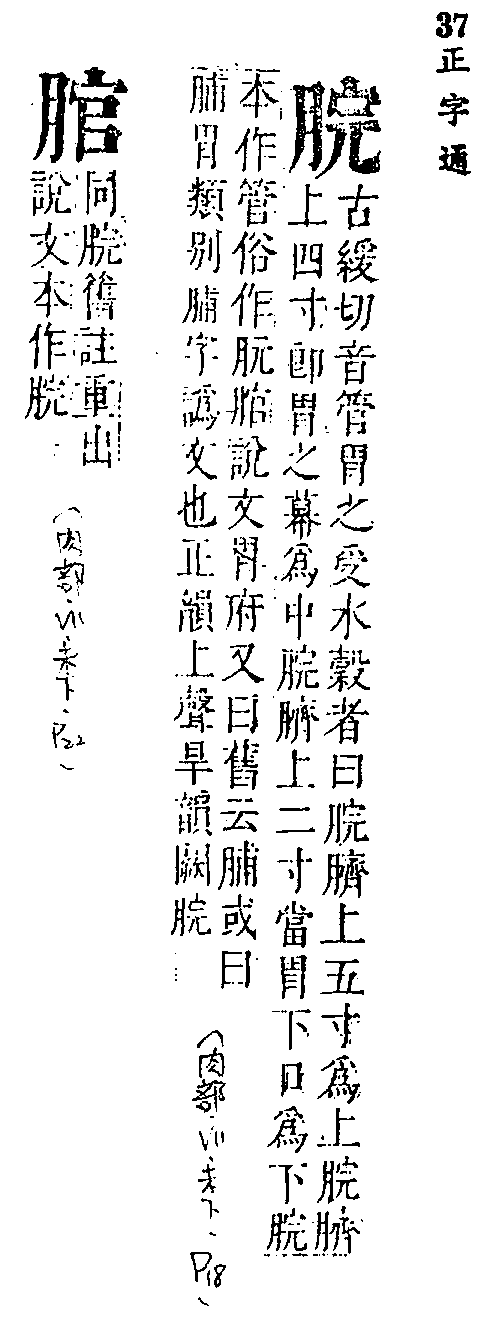 37正字通
脘
古緩切音管胃之受水穀者曰脘臍上五寸爲上脘臍
上四寸卽胃之幕爲中脘臍上二寸當胃下口爲下脘
本作管俗作脘䏓說文胃府又曰舊云脯或曰
脯胃類別脯字譌文也正韻上聲旱韻闕脘
(肉部、VII、未下、P18)
䏓
同脘舊註重出
說文本作脘
(肉部、VII、未下、P22)